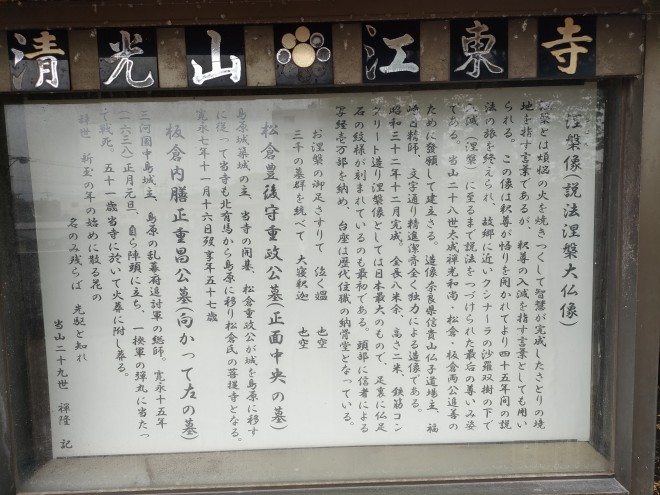 清光山 江東寺
涅槃像(説法涅槃大仏像)
涅槃とは煩悩の火を焼きつくして智慧が完成したさとりの境
地を指す言葉であるが、釈尊の入滅を指す言葉としても用い
られる。この像は釈尊が悟りを開かれてより四十五年間の説
法の旅を終えられ、故郷に近いクシナーラの沙羅双樹の下で
入滅(涅槃)に至るまで説法をつづけられた最后の尊いみ姿
である。当山二十八世大成禅光和尚・松倉・板倉両公追善の
ために発願して建立さる。造像奈良県信貴山仏子道場主、福
崎日精師、文字通り精進潔斎全く独力による造像である。
昭和三十二年十二月完成。全長八米余、高さ二米、鉄筋コン
クリート造り涅槃像としては日本最大のもので、足裏に仏足
石の紋様が刻まれているのも最初である。頭部に信者による
写経壱万部を納め、台座は歴代住職の納骨堂となっている。
お涅槃の御足さすりて 泣く媼 也空
三千の墓群を統べて 大寝釈迦 也空
松倉豊後守重政公墓(正面中央の墓)
島原城築城の主、当寺の開基、松倉重政公が城を島原に移す
に従って当寺も北有馬から島原に移り松倉氏の菩提寺となる。
寛永七年十一月十六日歿享年五十七歳
板倉内膳正重昌公墓(向かって左の墓)
三河国中島城主、島原の乱幕府追討軍の総師。寛永十五年
(一六三八)正月元旦、自ら陣頭に立ち、一揆軍の弾丸に当たっ
て戦死。五十一歳当寺に於いて火葬に附し葬る。
辞世 新玉の年の始めに散る花の
名のみ残らば 先駆と知れ
当山二十九世 禅隆 記